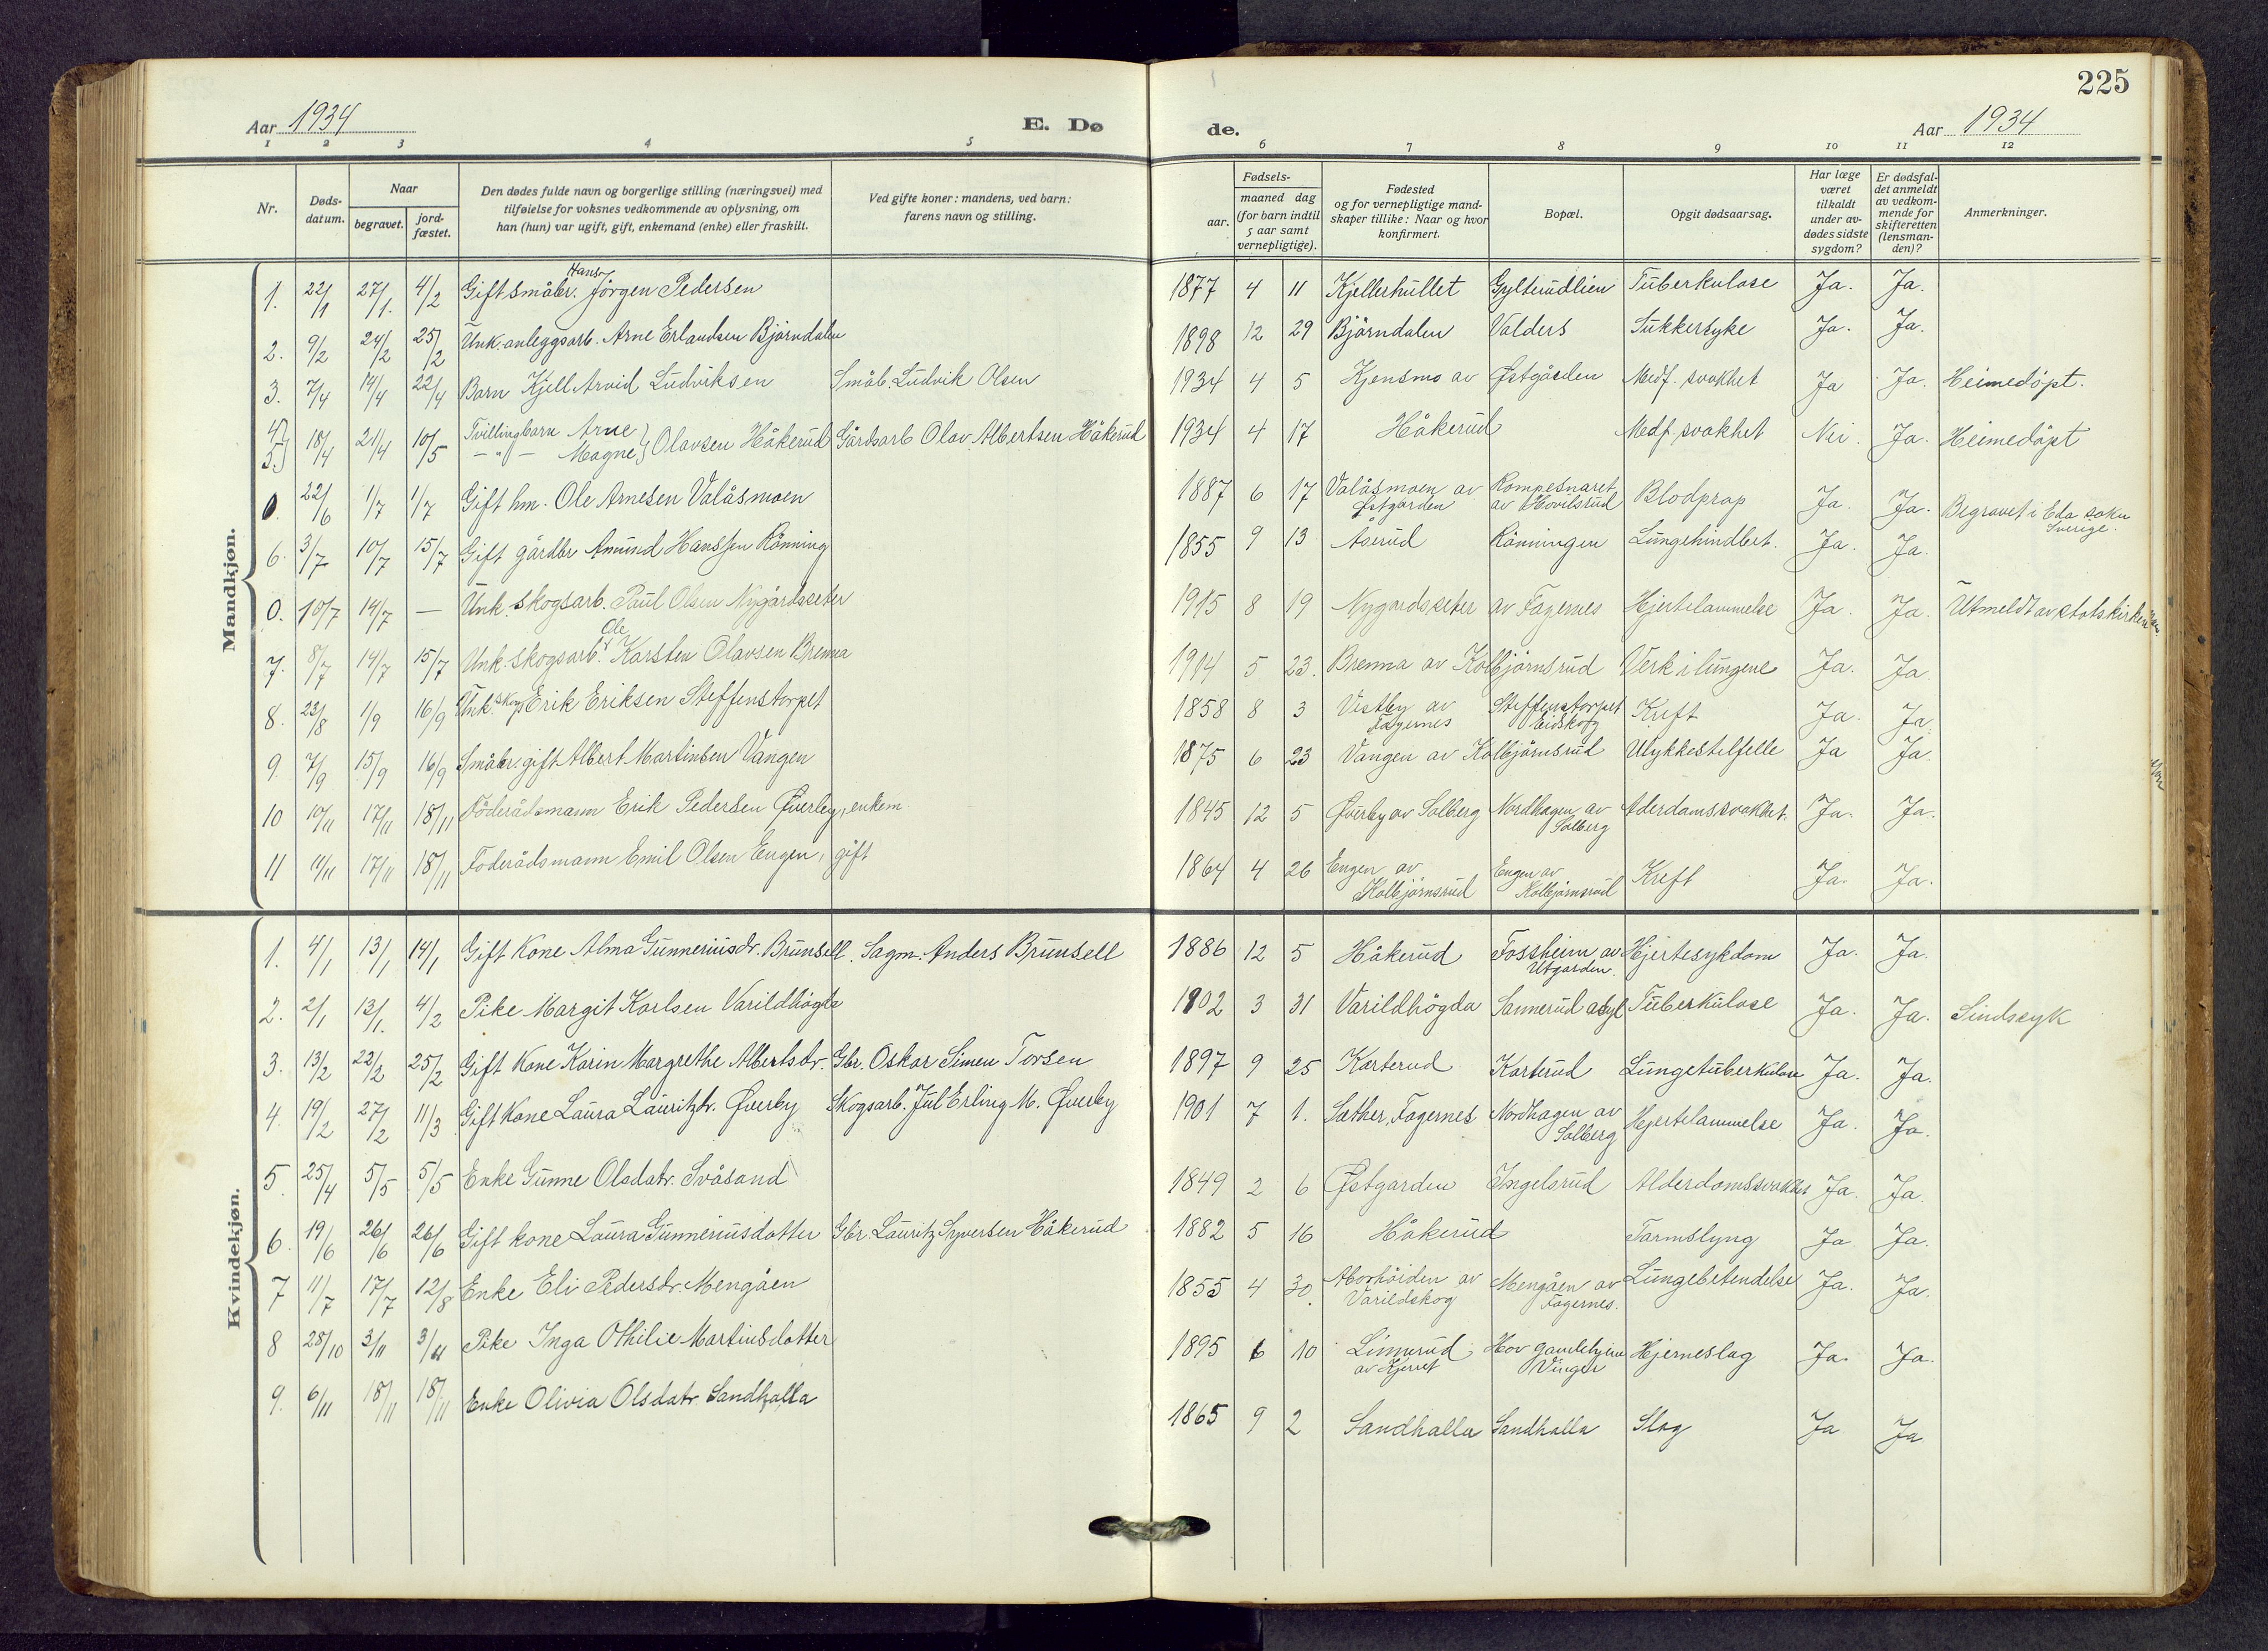 225
Aar 1934
E. Dø
de.
Aar 1934
1 2 3 4 5 6 7 8 9 10 11 12
Nr.
Døds-
datum.
Naar
begravet.
jord-
fæstet.
Den dødes fulde navn og borgerlige stilling (næringsvei) med
tilføielse for voksnes vedkommende av oplysning, om
han (hun) var ugift, gift, enkemand (enke) eller fraskilt.
Ved gifte koner: mandens, ved barn:
farens navn og stilling.
Fødsels-
aar.
maaned dag
(for barn indtil
5 aar samt
vernepligtige).
Fødested
og for vernepligtige mand-
skaper tillike: Naar og hvor
konfirmert.
Bopæl.
Opgit dødsaarsag.
Har læge
været
tilkaldt
under av-
dødes sidste
sygdom?
Er dødsfal-
det anmeldt
av vedkom-
mende for
skifteretten
(lensman-
den)?
Anmerkninger.
Mandkjøn.
1. 22/1 27/1. 4/2 Gift småbr. Hans Jörgen Pedersen 1877 4 11 Kjellerhullet Gylterudlien Tuberkulose Ja. Ja.
2. 9/2 24/2 25/2 Unk. anleggsarb. Arne Erlandsen Björndalen 1898 12 29 Björndalen Valders Sukkersyke Ja. Ja.
3. 7/4 14/4 22/4 Barn Kjell Arvid Ludviksen Småb. Ludvik Olsen 1934 4 5 Kjensmo av Østgården Medf. svakhet Ja Ja. Heimedöpt.
4) 5.) 18/4 21/4 10/5 Tvillingbarn Arne
— " — Magne } Olavsen Håkerud Gårdsarb Olav Albertsen Håkerud 1934 4 17 Håkerud Medf. svakhet Nei. Ja. Heimedöpt
0. 22/6 1/7 1/7 Gift hm. Ole Arnesen Valåsmoen 1887 6 17 Valåsmoen av Østgarden Rompesnaret av Hovilsrud Blodprop Ja. Ja. Begravet i Eda sokn Sverige.
6. 3/7 10/7 15/7 Gift gårdbr Amund Hanssen Rönning 1855 9 13 Åserud Rönningen Lungehindbet. Ja. Ja.
0. 10/7 14/7 — Unk. skogsarb. Paul Olsen Nygårdsseter 1915 8 19 Nygardsseter av Fagernes Hjertelammelse Ja. Ja. Utmeldt av statskirken
7. 8/7 14/7 15/7 Unk. skogsarb. Ole Karsten Olavsen Brenna 1914 5 23. Brenna av Kolbjörnsrud Verk i lungene Ja. Ja.
8. 23/8 1/9 16/9 Unk. skogs Erik Eriksen Steffenstorpet 1858 8 3 Vestby av Fagernes Steffenstorpet Eidskog Kreft Ja. Ja
9. 7/9 15/9 16/9 Småbr. gift Albert Martinsen Vangen 1875 6 23 Vangen av Kolbjörnsrud Ulykkestilfelle Ja Ja.
10 10/11 17/11 18/11 Föderådsmann Erik Pedersen Øverby, enkem. 1845 12 5 Øverby av Solberg Nordhagen av Solberg Alderdomssvakhet. Ja. Ja.
11 11/11 17/11 18/11 Föderådsmann Emil Olsen Engen, gift 1864 4 26 Engen av Kolbjörnsrud Engen av Kolbjörnsrud Kreft Ja. Ja.
Kvindekjøn.
1. 4/1 13/1 14/1 Gift Kone Alma Gunneriusdr. Brunsell. Sagm. Anders Brunsell 1886 12 5 Håkerud Fossheim av Utgarden. Hjertesykdom Ja. Ja.
2. 2/1 13/1. 4/2 Pike Margit Karlsen Varildhögda 1902 3 31 Varildhögda Sannerud asyl Tuberkulose Ja. Ja. Sindssyk
3. 13/2 22/2 25/2 Gift Kone Karin Margrethe Albertsdr. Gbr. Oskar Simen Torsen 1897 9 25 Karterud Karterud Lungetuberkulose Ja. Ja.
4. 19/2 27/2 11/3 Gift Kone Laura Lauritzdr. Øverby Skogsarb. Jul Erling M. Øverby 1901 7 1. Sæther, Fagernes Nordhagen av Solberg Hjertelammelse Ja. Ja.
5. 25/4 5/5 5/5 Enke Gunne Olsdatr. Svåsand 1849 2 6 Østgarden Ingelsrud Alderdomssvakhet Ja. Ja.
6. 19/6 26/6 26/6 Gift kone Laura Gunneriusdatter Gbr. Lauritz Syversen Håkerud 1882 5 16 Håkerud Tarmslyng Ja Ja.
7 11/7 17/7 12/8 Enke Eli Pedersdr. Mengåen 1855 4 30. Morhöiden av Varildskog Mengåen av Fagernes. Lungebetendelse Ja. Ja.
8 28/10 3/11 3/11 Pike Inga Othilie Martinsdatter 1895 6 10 Linnerud av Kjerret Hov gamlehjem Vinger Hjerneslag Ja. Ja.
9. 6/11 18/11 18/11 Enke Olivia Olsdatr. Sandhalla 1865 9 2 Sandhalla Sandhalla Slag Ja Ja